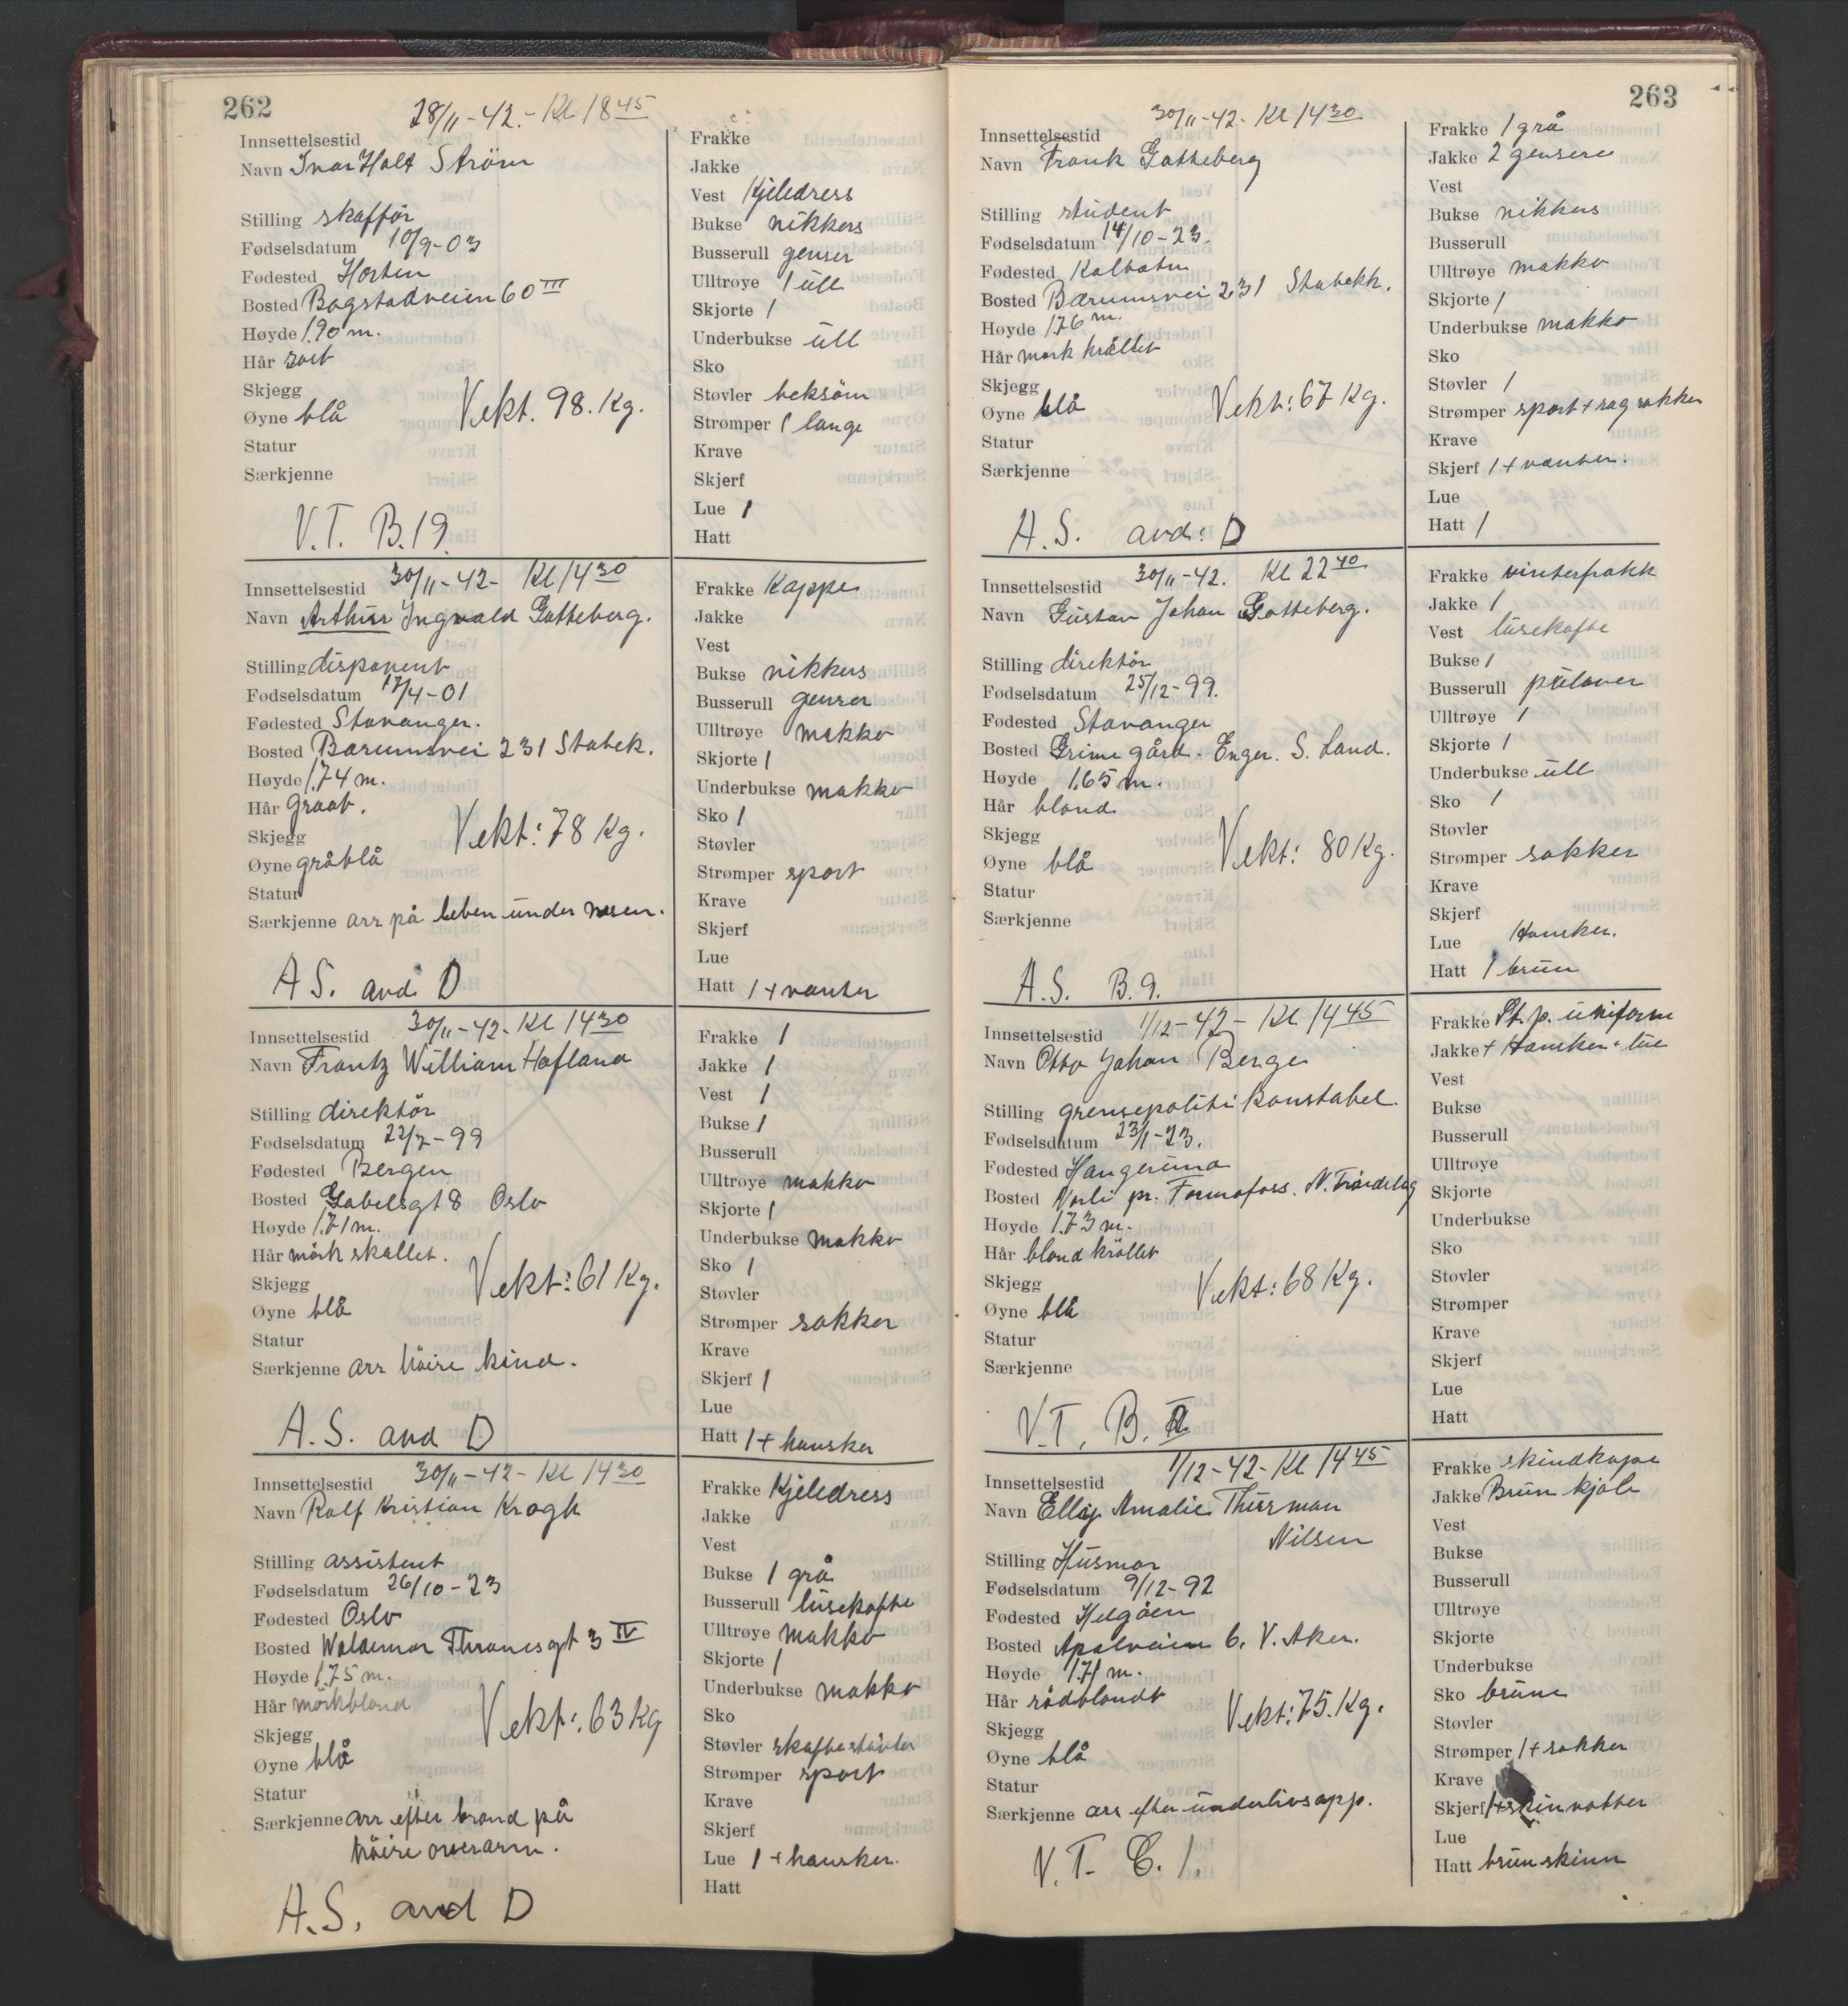 262
28/11-42.- Kl 18 45
Innsettelsestid
Navn Ivar Holt Ström
Stilling skafför
Fødselsdatum 10/9-03
Fødested Horten
Bosted Bogstadveien 60 III
Høyde 1.90 m.
Hår sort
Skjegg
Øyne blå
Vekt. 98. Kg.
Statur
Særkjenne
V.T. B.19.
Frakke
Jakke
Vest Kjeledress
Bukse nikkers
Busserull genser
Ulltrøye 1 ull
Skjorte 1
Underbukse ull
Sko
Støvler beksöm
Strømper 1 lange
Krave
Skjerf
Lue 1
Hatt
Innsettelsestid 30/11-42- Kl 14 30
Navn Arthur Ingvald Gotteberg.
Stilling disponent
Fødselsdatum 17/4-01
Fødested Stavanger.
Bosted Bærumsvei 231 Stabek.
Høyde 1.74 m.
Hår graat.
Skjegg
Øyne gråblå
Vekt: 78 Kg.
Statur
Særkjenne arr på leben under nesen.
A.S. avd. D
Frakke Kappe
Jakke
Vest
Bukse nikkers
Busserull genser
Ulltrøye makko
Skjorte 1
Underbukse makko
Sko 1
Støvler
Strømper sport
Krave
Skjerf
Lue
Hatt 1 + vanter
Innsettelsestid 30/11-42- Kl 14 30
Navn Frantz William Hafland
Stilling direktör
Fødselsdatum 22/7-99
Fødested Bergen
Bosted Gabelsgt 8 Oslo
Høyde 1.71 m.
Hår mörk skallet.
Skjegg
Øyne blå
Vekt: 61 Kg.
Statur
Særkjenne arr höire kind.
A.S. avd D
Frakke 1
Jakke 1
Vest 1
Bukse 1
Busserull
Ulltrøye makko
Skjorte 1
Underbukse makko
Sko 1
Støvler
Strømper sokker
Krave
Skjerf 1
Lue
Hatt 1 + hansker
Innsettelsestid 30/11-42- Kl 14 30
Navn Rolf Kristian Krogh
Stilling assistent
Fødselsdatum 26/10-23
Fødested Oslo
Bosted Waldemar Thranesgt 3 IV
Høyde 1.75 m.
Hår mörkblond
Skjegg
Øyne blå
Vekt: 63 Kg
Statur
Særkjenne arr efter brand på
höire overarm.
A.S. avd D
Frakke Kjeledress
Jakke
Vest
Bukse 1 grå
Busserull lusekofte
Ulltrøye makko
Skjorte 1
Underbukse makko
Sko
Støvler skaftestövler
Strømper sport
Krave
Skjerf
Lue 1 + hansker.
Hatt
263
30/11-42- Kl 14 30
Innsettelsestid
Navn Frank Gotteberg
Stilling student
Fødselsdatum 14/10-23.
Fødested Kolbotn
Bosted Bærumsvei 231 Stabekk.
Høyde 1.76 m.
Hår mörk kröllet
Skjegg
Øyne blå
Vekt: 67 Kg.
Statur
Særkjenne
A.S. avd: D
Frakke 1 grå
Jakke 2 gensere
Vest
Bukse nikkers
Busserull
Ulltrøye makko
Skjorte 1
Underbukse makko
Sko
Støvler 1
Strømper sport + rag sokker
Krave
Skjerf 1 + vanter.
Lue
Hatt 1
Innsettelsestid 30/11-42. Kl 22 40
Navn Gustav Johan Gotteberg.
Stilling direktör
Fødselsdatum 25/12-99.
Fødested Stavanger
Bosted Grime gård. Enger. S. Land.
Høyde 1.65 m.
Hår blond
Skjegg
Øyne blå
Vekt: 80 Kg.
Statur
Særkjenne
A.S. B.9.
Frakke vinterfrakk
Jakke 1
Vest lusekofte
Bukse 1
Busserull pulover
Ulltrøye 1
Skjorte 1
Underbukse ull
Sko 1
Støvler
Strømper sokker
Krave
Skjerf
Lue Hansker.
Hatt 1 brun
Innsettelsestid 1/12-42- Kl 14 45
Navn Otto Johan Berge
Stilling grensepoliti konstabel.
Fødselsdatum 23/1-23.
Fødested
Bosted Norli pr. Formofoss. N. Tröndelag
Høyde 1.73 m.
Hår blond kröllet
Skjegg
Øyne blå
Vekt: 68 Kg.
Statur
Særkjenne
V.T. B.
Frakke St. p. uniform
Jakke + Hansker + lue
Vest
Bukse
Busserull
Ulltrøye
Skjorte
Underbukse
Sko
Støvler
Strømper
Krave
Skjerf
Lue
Hatt
Innsettelsestid 1/12-42- Kl 14 45
Navn Elly Amalie Thurman
Nilsen
Stilling Husmor
Fødselsdatum 9/12-92
Fødested Helgöen
Bosted Apalveien 6. V. Aker.
Høyde 1.71 m.
Hår rödblondt
Skjegg
Øyne blå
Vekt: 75. Kg.
Statur
Særkjenne arr efter underlivsopp.
V.T. C. 1.
Frakke skindkape
Jakke Brun kjole
Vest
Bukse
Busserull
Ulltrøye
Skjorte
Underbukse
Sko brune
Støvler
Strømper 1 + sokker
Krave
Skjerf 1 + skinvotter
Lue
Hatt brun skinn